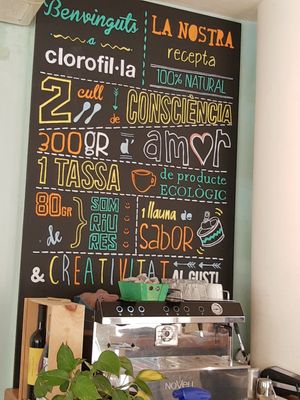 Benvinguts
a
clorofil·la
LA NOSTRA
recepta
100% NATURAL
2 cull de CONSCIÈNCIA
300GR d' amor
1 TASSA de producte
ECOLÒGIC
80GR de SOMRIURES
1 llauna de
SABOR
& CREATIVITAT AL GUST!